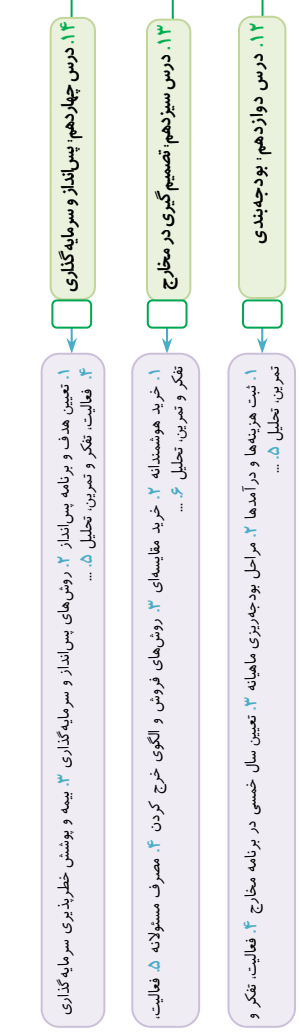 ۱۲. درس دوازدهم: بودجه‌بندی
۱. ثبت هزینه‌ها و درآمدها ۲. مراحل بودجه‌ریزی ماهیانه ۳. تعیین سال خمسی در برنامه مخارج ۴. فعالیت، تفکر و
تمرین، تحلیل ۵. ...
۱۳. درس سیزدهم: تصمیم‌گیری در مخارج
۱. خرید هوشمندانه ۲. خرید مقایسه‌ای ۳. روش‌های فروش و الگوی خرج کردن ۴. مصرف مسئولانه ۵. فعالیت،
تفکر و تمرین، تحلیل ۶. ...
۱۴. درس چهاردهم: پس‌انداز و سرمایه‌گذاری
۱. تعیین هدف و برنامه پس‌انداز ۲. روش‌های پس‌انداز و سرمایه‌گذاری ۳. بیمه و پوشش خطرپذیری سرمایه‌گذاری
۴. فعالیت، تفکر و تمرین، تحلیل ۵. ...